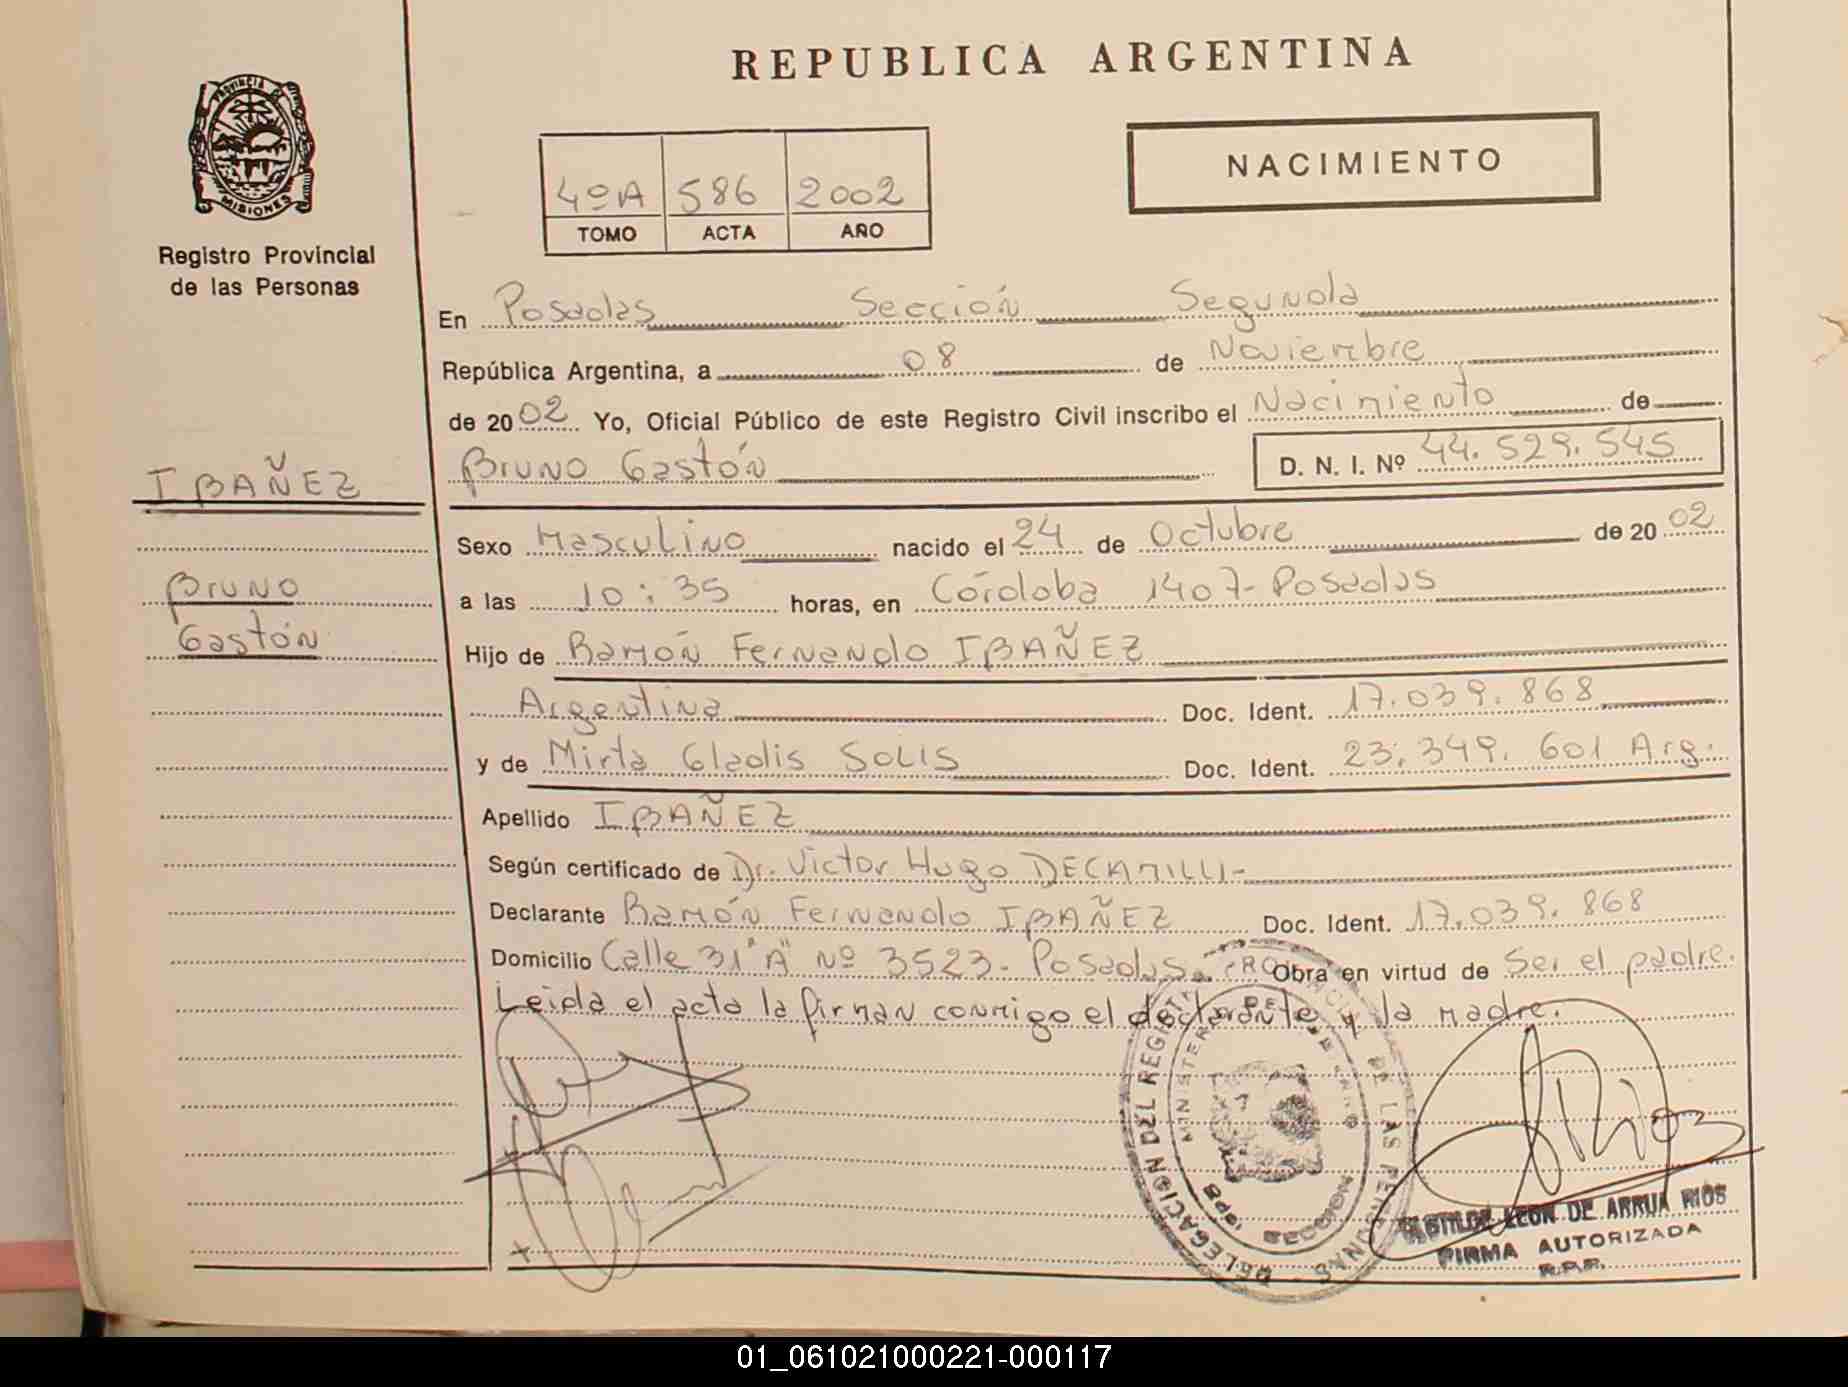 REPUBLICA ARGENTINA
PROVINCIA DE
MISIONES
Registro Provincial
de las Personas
4º A 586 2002
TOMO ACTA AÑO
NACIMIENTO
En Posadas Sección Segunda
República Argentina, a 08 de Noviembre
de 2002 Yo, Oficial Público de este Registro Civil inscribo el Nacimiento de
Bruno Gastón D. N. I. Nº 44.529.545
IBAÑEZ
Bruno
Gastón
Sexo Masculino nacido el 24 de Octubre de 2002
a las 10:35 horas, en Córdoba 1407-Posadas
Hijo de Ramón Fernando IBAÑEZ
Argentina Doc. Ident. 17.039.868
y de Mirta Gladis SOLIS Doc. Ident. 23.349.601 Arg.
Apellido IBAÑEZ
Según certificado de Dr. Victor Hugo DECAMILLI-
Declarante Ramón Fernando IBAÑEZ Doc. Ident. 17.039.868
Domicilio Calle 31"A" Nº 3523- Posadas. Obra en virtud de Ser el padre.
Leida el acta la firman conmigo el declarante y la madre.
DELEGACION DEL REGISTRO DE LAS PERSONAS
SECCION
LEON DE ARRUA RIOS
FIRMA AUTORIZADA
R.P.P.
01_061021000221-000117